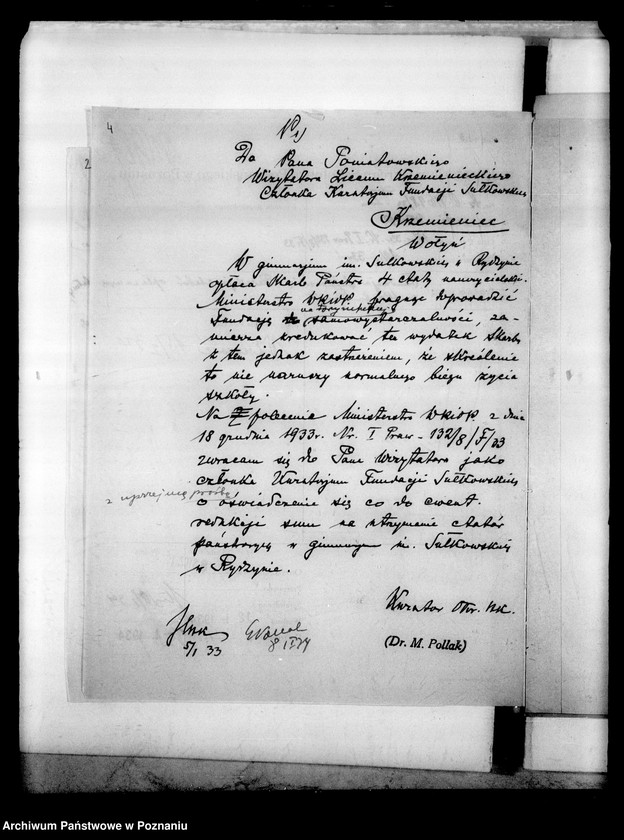 4
2
Do Pana Poniatowskiego
Wizytatora Liceum Krzemienieckiego
Członka Kuratorjum Fundacji Sułkowskich
Krzemieniec
Wołyń
W gimnazjum im. Sułkowskich w Rydzynie
opłaca Skarb Państwa 4 etaty nauczycielskie.
Ministerstwo WRiOP. pragnąc doprowadzić
Fundację do samowystarczalności, za-
mierza zredukować ten wydatek Skarbu
z tem jednak zastrzeżeniem, że skreślenie
to nie naruszy normalnego biegu życia
szkoły.
Na polecenie Ministerstwa WRiOP. z dnia
18 grudnia 1933r. Nr. I Praw-132/8/F/33
zwracam się do Pana Wizytatora jako
członka Kuratorjum Fundacji Sułkowskich
z uprzejmą prośbą
o oświadczenie się co do ewent.
redukcji sum na utrzymanie etatów
państwowych w gimnazjum im. Sułkowskich
w Rydzynie.
Kurator Okr. Szk.
5/I 33
8 I 34
(Dr. M. Pollak)
Archiwum Państwowe w Poznaniu